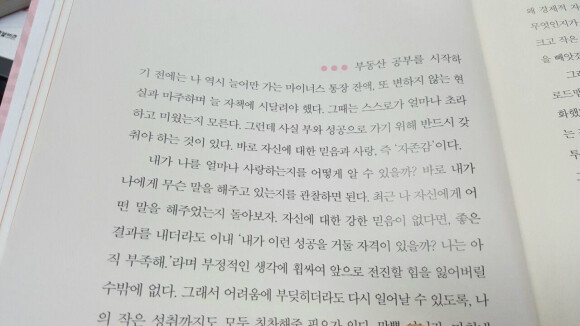 부동산 공부를 시작하
기 전에는 나 역시 늘어만 가는 마이너스 통장 잔액, 또 변하지 않는 현
실과 마주하며 늘 자책에 시달려야 했다. 그때는 스스로가 얼마나 초라
하고 미웠는지 모른다. 그런데 사실 부와 성공으로 가기 위해 반드시 갖
춰야 하는 것이 있다. 바로 자신에 대한 믿음과 사랑, 즉 ‘자존감’이다.
내가 나를 얼마나 사랑하는지를 어떻게 알 수 있을까? 바로 내가
나에게 무슨 말을 해주고 있는지를 관찰하면 된다. 최근 나 자신에게 어
떤 말을 해주었는지 돌아보자. 자신에 대한 강한 믿음이 없다면, 좋은
결과를 내더라도 이내 ‘내가 이런 성공을 거둘 자격이 있을까? 나는 아
직 부족해.’라며 부정적인 생각에 휩싸여 앞으로 전진할 힘을 잃어버릴
수밖에 없다. 그래서 어려움에 부딪히더라도 다시 일어날 수 있도록, 나
의 작은 성취까지도 모두 칭찬해줄 필요가 있다.
왜 경제적 자
무엇인지가
크고 작은
을 빼앗겼
로드맨
화했
는